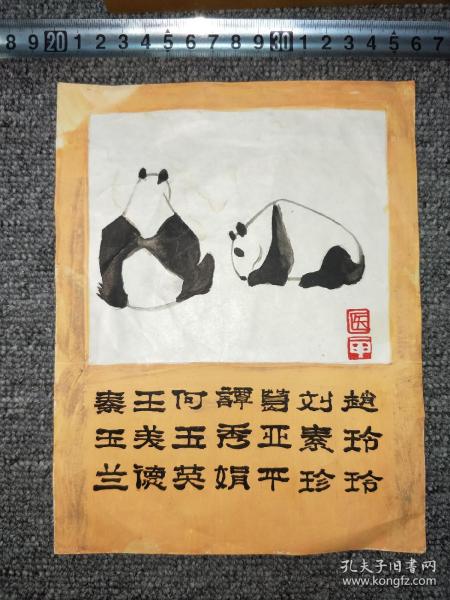 8 9 20 1 2 3 4 5 6 7 8 9 30 1 2 3 4 5 6 7
趙玲玲
刘素珍
亚平
譚秀娟
何玉英
王美德
秦玉兰
孔夫子旧书网
www.kongfz.com